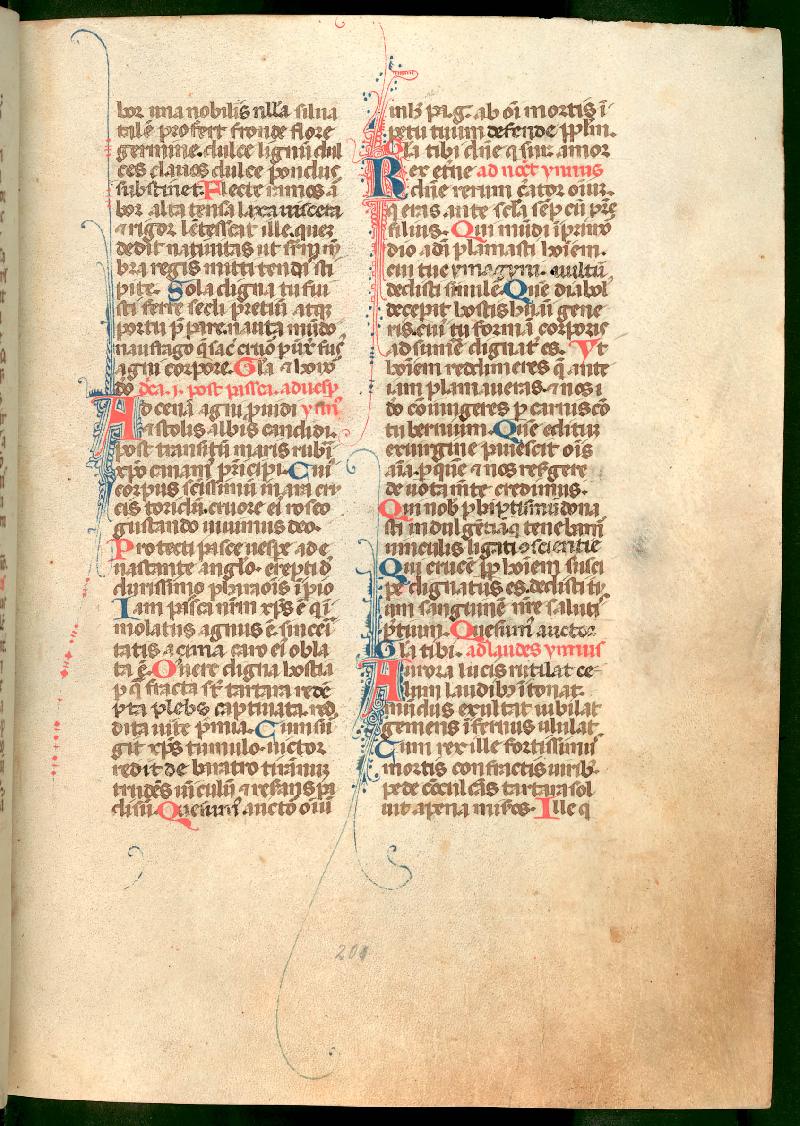 bor una nobilis nlla silua
talē profert fronde flore
germine. dulce lignū dul
ces clauos dulce pondus
sustinet. Flecte ramos ar
bor alta tensa laxa uiscera
⁊ rigor lētescat ille. quez
dedit natiuitas ut
bra regis miti tendās sti
pite. Sola digna tu fui
sti ferre secli pretiū atqꝫ
portū p̄pare. nauta mūdo
naufrago
agni corpore. Gla ⁊ hono
do dn̄ca .i. post pasca. ad uesp̄
Ad cenā agni ꝓuidi ymn̄
⁊ stolis albis candidi.
post transitū maris rubri
xp̄o canam̄ prīcipi. Cui
corpus scissimū in ara cru
cis toridū. cruore ei roseo
gustando uiuimus deo.
Protecti pasce uespe. a de
uastante anglo. erepti d
durissimo pharaonis īpio
Iam pasca nr̄m xp̄s ē qi
molatus agnus ē. sinceri
tatis acima caro ei obla
ta ē. O uere digna hostia
p̄ q̄ fracta st̄ tartara rede
pta plebs captiuata. red
dita uite p̄mia. Cum sur
git xp̄s tumulo. uictor
redit de baratro tirānū
trudēs uīculū ⁊ reserās pa
disū. Quesum̄ auctō oīuꝫ
in hꝫ pa.g. ab oī mortis ī
petu tuum defende pplm.
Gla tibi dn̄e q̄ sur. a mor
Rex etn̄e ad noct̄ ymnus
dn̄e rerum c̄ator oīuꝫ.
q̄ eras ante scl̄a sēp cū prē
filius. Qui mūdi ī primor
dio adā plamasti hoīem.
cui tue ymagyni. uultū
dedisti simile. Que diabol̄
decepit hostis hūani gene
ris. cui tu formā corporis
adsumē dignatꝰ es. Vt
hoīem redimeres q̄ ante
iam plamaueras. ⁊ nos d
do coniungeres p̄ carnis cō
tubernium. Que editu
ex uirgine pauescit oīs
aīa. p̄ que ⁊ nos resgere
deuota mēte credimus.
Qui nob̄ p̄ baptismū dona
sti indulgētiā q̄ tenebam̄
uinculis ligati scientie
Qui crucē pp̄ hoīem susci
pe dignatus es. dedisti tu
um sanguinē nr̄e saluti
p̄tium. Quesum̄ auctor
Gla tibi. ad laudes ymnus
Aurora lucis rutilat ce
lum laudibꝫ ītonat.
mūdus exultat iubilat
gemens īfernus ululat
Cum rex ille fortissimꝰ
mortis confractis uiribꝫ
pede cōculcās tartara sol
uit apena miseros. Ille q̄
201